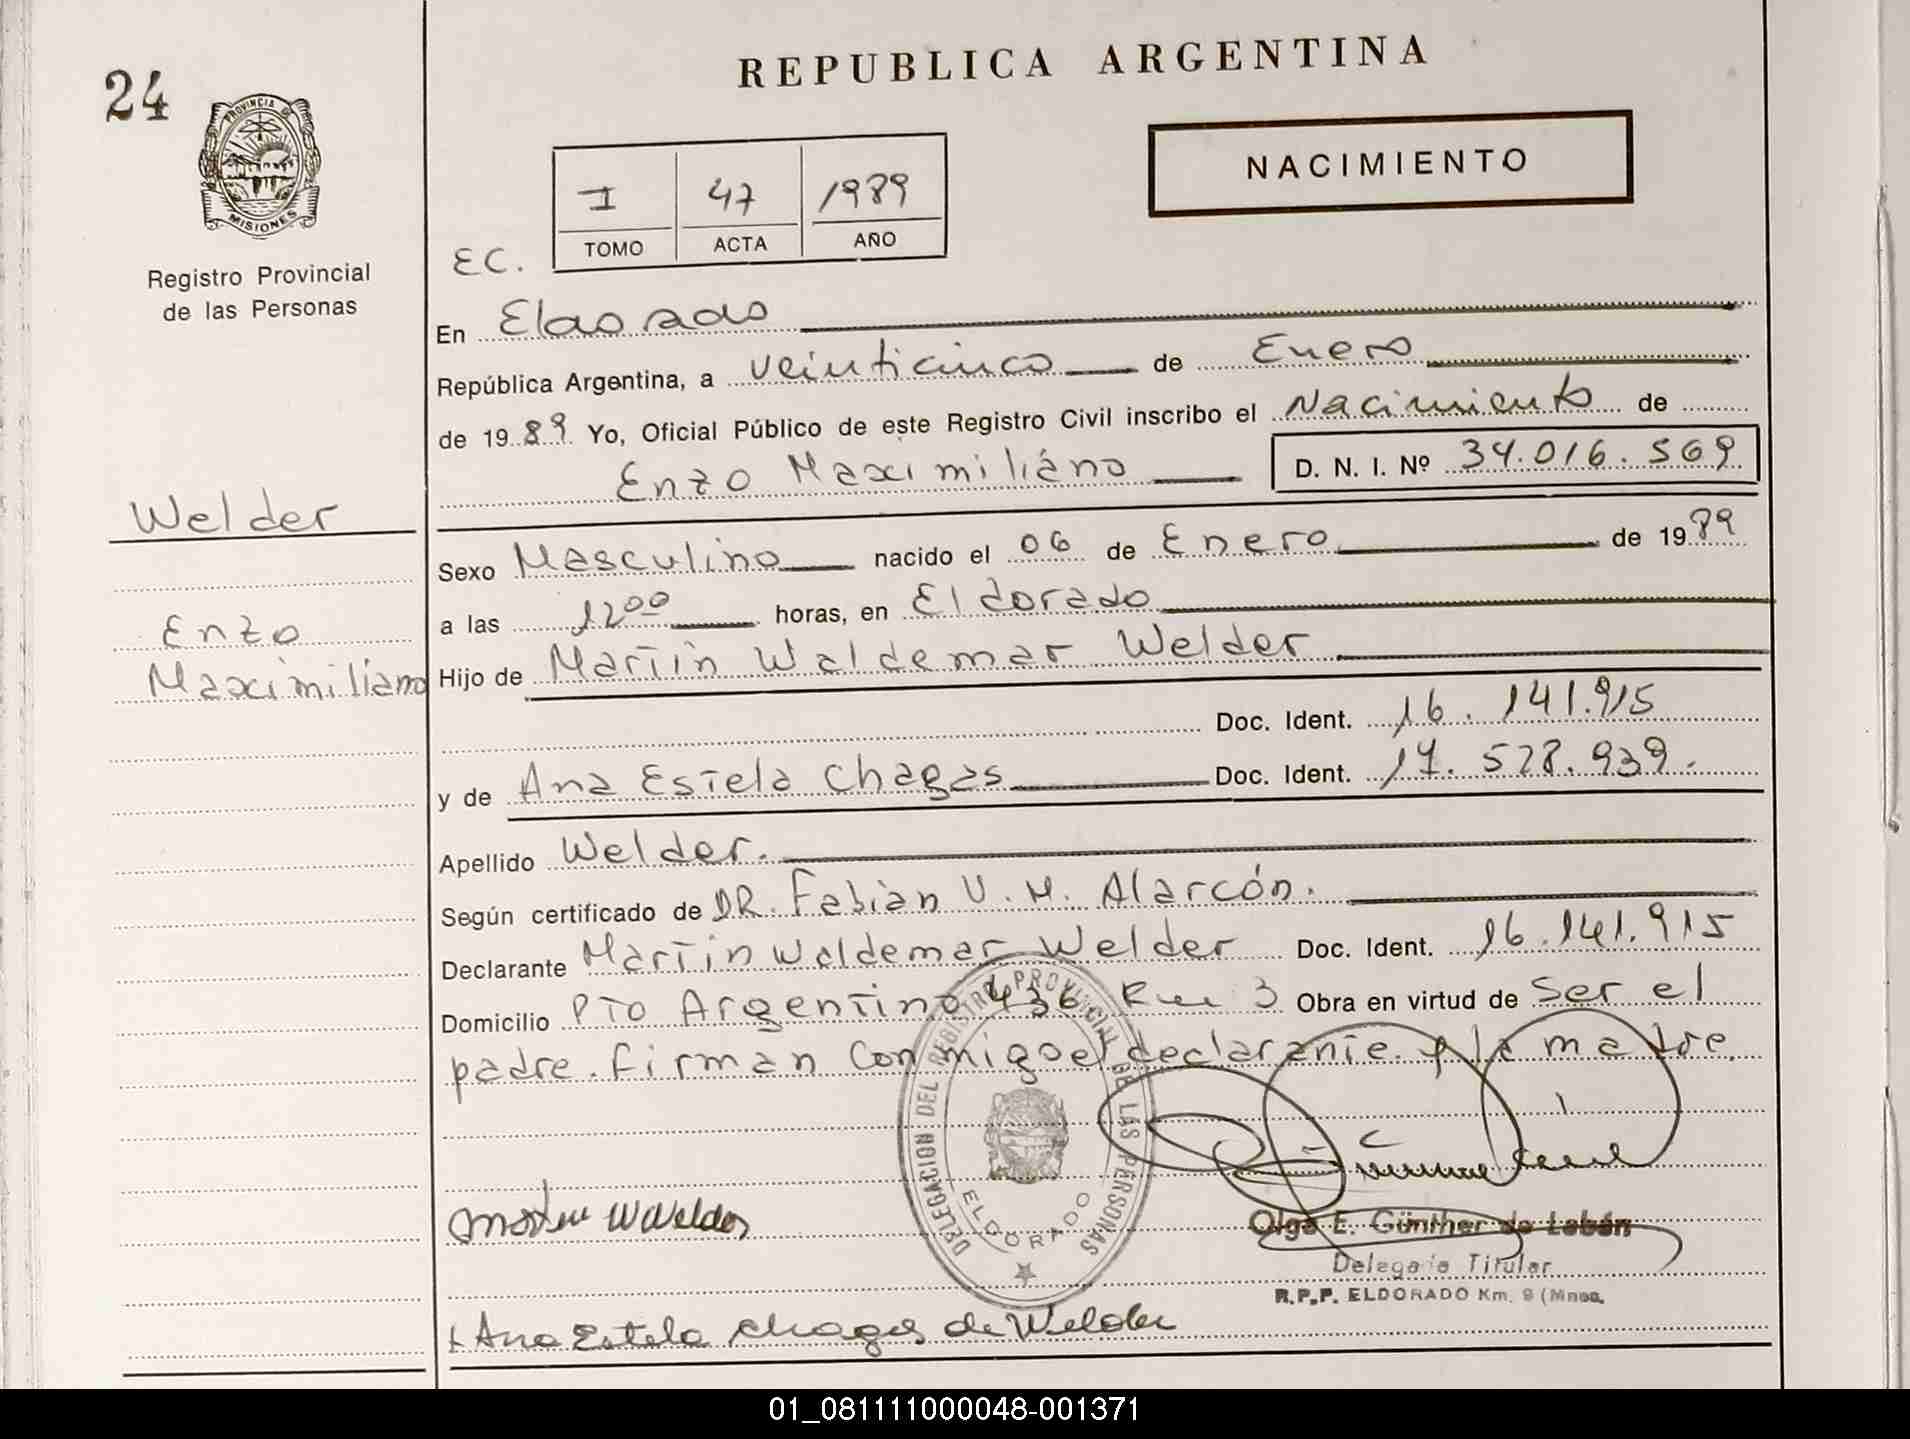 24
REPUBLICA ARGENTINA
PROVINCIA DE
MISIONES
Registro Provincial
de las Personas
NACIMIENTO
I 47 1989
TOMO ACTA AÑO
EC.
En Eldorado
República Argentina, a veinticinco de Enero
de 1989 Yo, Oficial Público de este Registro Civil inscribo el Nacimiento de
Enzo Maximiliano D. N. I. Nº 34.016.569
Welder
Enzo
Maximiliano
Sexo Masculino nacido el 06 de Enero de 1989
a las 12 00 horas, en Eldorado
Hijo de Martín Waldemar Welder
Doc. Ident. 16.141.915
y de Ana Estela Chagas Doc. Ident. 17.528.939.
Apellido Welder.
Según certificado de DR. Fabián V. M. Alarcón.
Declarante Martín Waldemar Welder Doc. Ident. 16.141.915
Domicilio Pto Argentino 436 Km 3 Obra en virtud de Ser el
padre. firman conmigo el declarante y la madre.
DELEGACION DEL REGISTRO PROVINCIAL DE LAS PERSONAS
ELDORADO
Olga E. Günther de Labán
Delegada Titular
R.P.P. ELDORADO Km. 9 (Mnes.
Ana Estela Chagas de Welder
01_081111000048-001371